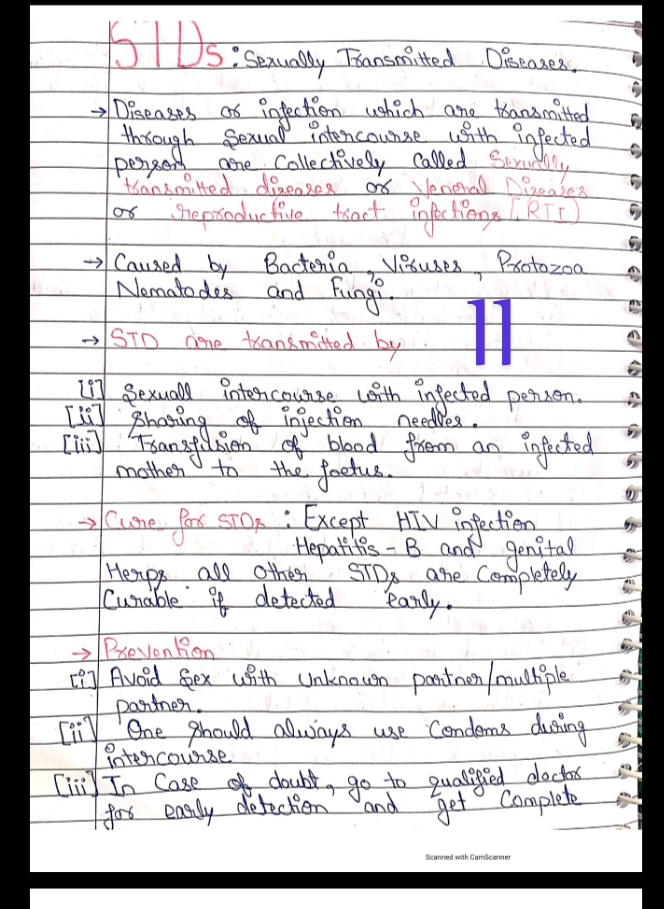 STDs : Sexually Transmitted Diseases.
→ Diseases or infection which are transmitted
through sexual intercourse with infected
person are collectively called Sexually
transmitted diseases or Veneral Diseases
or reproductive tract infections (RTI)
→ Caused by Bacteria, Viruses, Protozoa
Nematodes and Fungi.
11
→ STD are transmitted by
[i] Sexuall intercourse with infected person.
[ii] Sharing of injection needles.
[iii] Transfusion of blood from an infected
mother to the foetus.
→ Cure for STDs : Except HIV infection
Hepatitis - B and genital
Herps all other STDs are Completely
Curable if detected early.
→ Prevention
[i] Avoid sex with unknown partner/multiple
partner.
[ii] One should always use Condoms during
intercourse
[iii] In Case of doubt, go to qualified doctor
for early detection and get Complete
Scanned with CamScanner